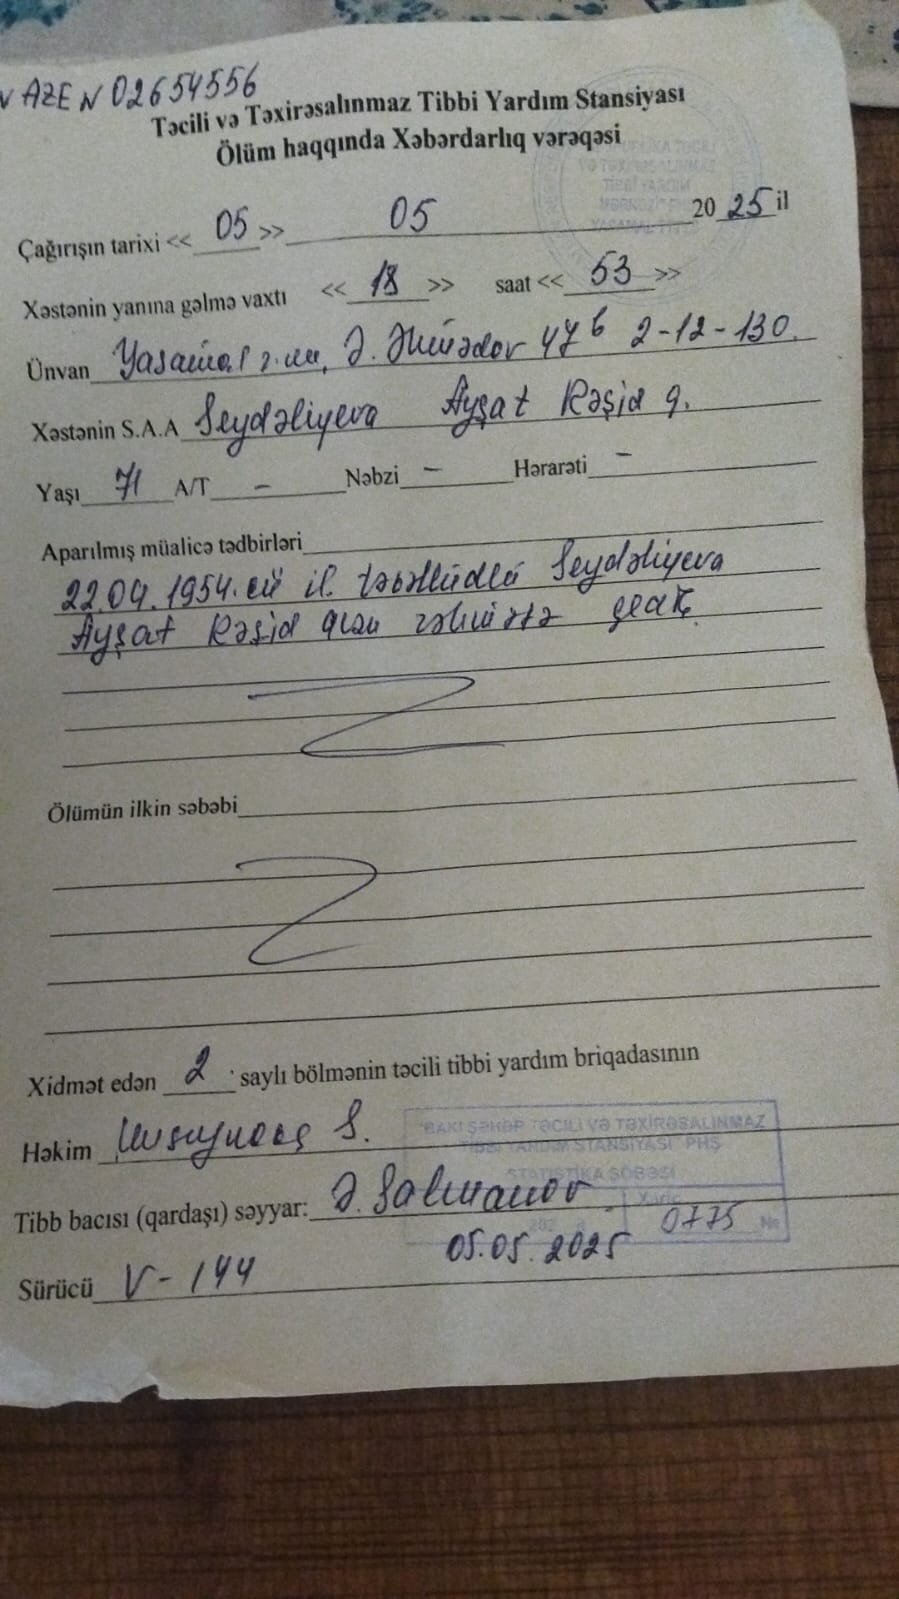 AZE N 02654556
Təcili və Təxirəsalınmaz Tibbi Yardım Stansiyası
Ölüm haqqında Xəbərdarlıq vərəqəsi
Çağırışın tarixi << 05 >> 05 2025 il
Xəstənin yanına gəlmə vaxtı << 18 >> saat << 53 >>
Ünvan Yasamal 2-12-130.
Xəstənin S.A.A Seydəliyeva Ayşat Rəşid q.
Yaşı 71 A/T - Nəbzi - Hərarəti -
Aparılmış müalicə tədbirləri
22.04.1954.cü il təvəllüdlü Seydəliyeva
Ayşat Rəşid qızı
Ölümün ilkin səbəbi
Xidmət edən 2 saylı bölmənin təcili tibbi yardım briqadasının
Həkim S.
"BAKI ŞƏHƏR TƏCİLİ VƏ TƏXİRƏSALINMAZ
TİBBİ YARDIM STANSİYASI" PHŞ
STATİSTİKA ŞÖBƏSİ
Tibb bacısı (qardaşı) səyyar: Ə. Salmanov
0775 №
05.05.2025
Sürücü V-144